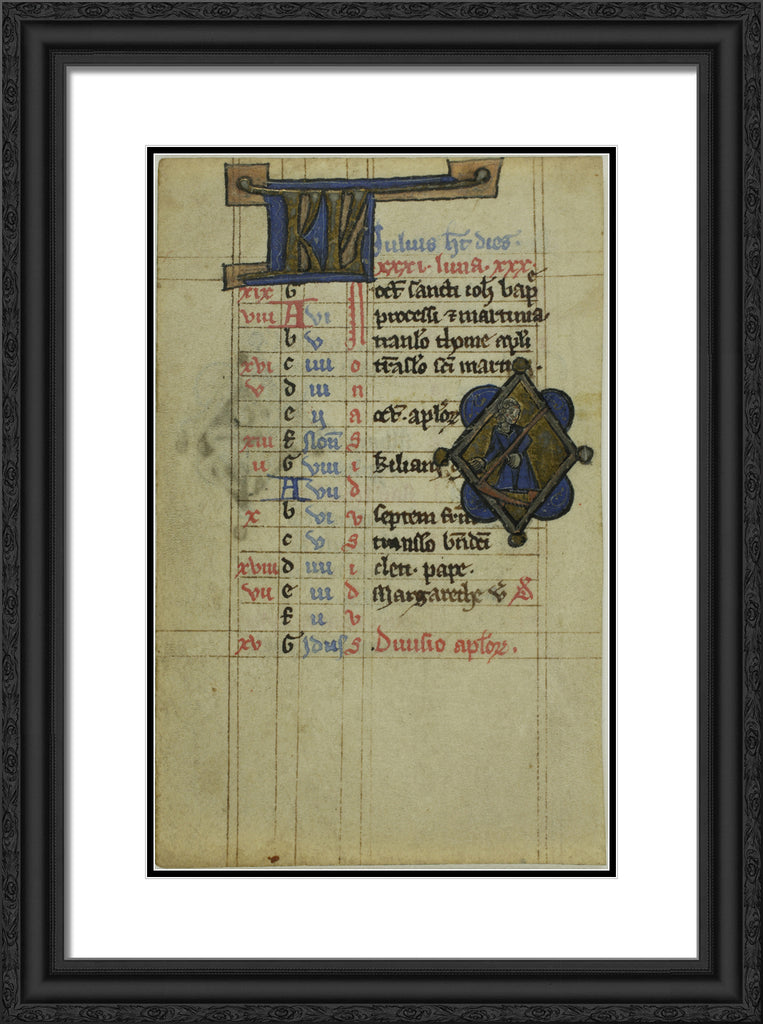 KL Julius ht dies.
xxxi. luna. xxx.
xix G oct sancti ioh bap
viii A vi processi & martinia.
b v translo thome apli
xvi c iiii o traslo sci martini.
v d iii n
e ii a oct. aplor
xiii f Non s
ii G viii i kiliani
A vii d
x b vi v septem frm
c v s translo bndicti
xviii d iiii i cleti. pape.
vii e iii d Margarethe v S
f ii v
xv G Idus s Diuisio aplor.